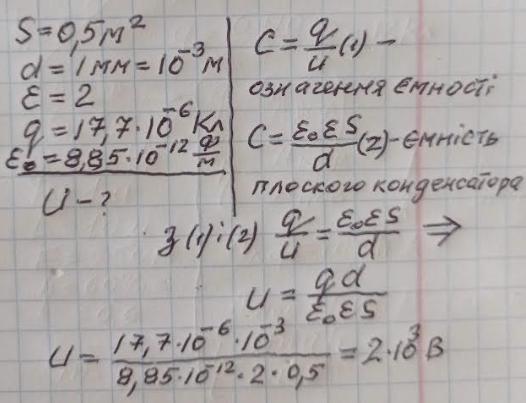 S = 0,5 м²
d = 1 мм = 10⁻³ м
ε = 2
q = 17,7·10⁻⁶ Кл
ε₀ = 8,85·10⁻¹² Ф/м
U - ?
C = q/U (1) -
означення ємності
C = ε₀εS/d (2) - ємність
плоского конденсатора
З (1) і (2) q/U = ε₀εS/d ⇒
U = qd/ε₀εS
U = 17,7·10⁻⁶·10⁻³/8,85·10⁻¹²·2·0,5 = 2·10³ В